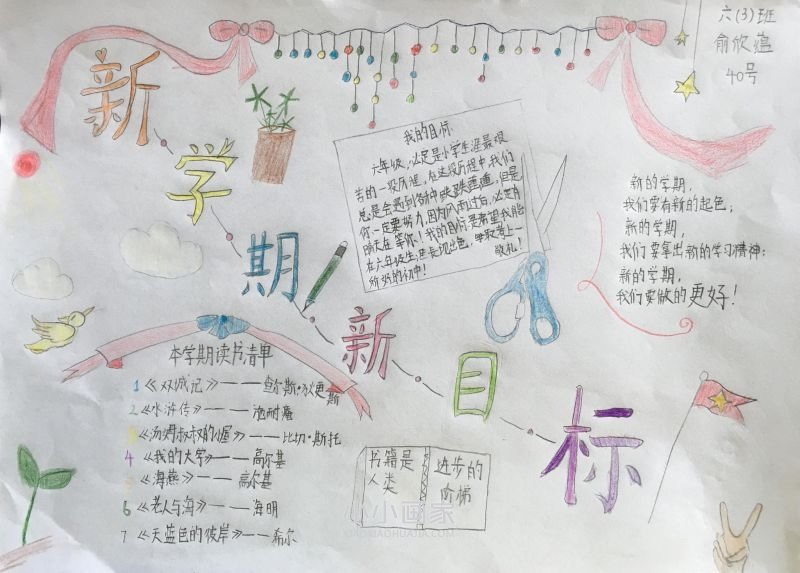 六(3)班
俞欣蕴
40号
新学期新目标
我的目标
六年级，必定是小学生涯最艰
苦的一段历程，在这段历程中，我们
总是会遇到各种跌跌撞撞，但是
你一定要努力，因为风雨过后，必定有
晴天在等你！我的目标是希望我能
在六年级生 长现出色，争取考上一
所好的初中！ 敬礼！
新的学期，
我们要有新的起色；
新的学期，
我们要拿出新的学习精神；
新的学期，
我们要做的更好！
本学期读书清单
1 《双城记》——查尔斯·狄更斯
2 《水浒传》——施耐庵
3 《汤姆叔叔的小屋》——比切·斯托
4 《我的大学》——高尔基
5 《海燕》——高尔基
6 《老人与海》——海明
7 《天蓝色的彼岸》——希尔
书籍是
人类
进步的
阶梯
小小画家
XIAOXIAOHUAJIA.COM